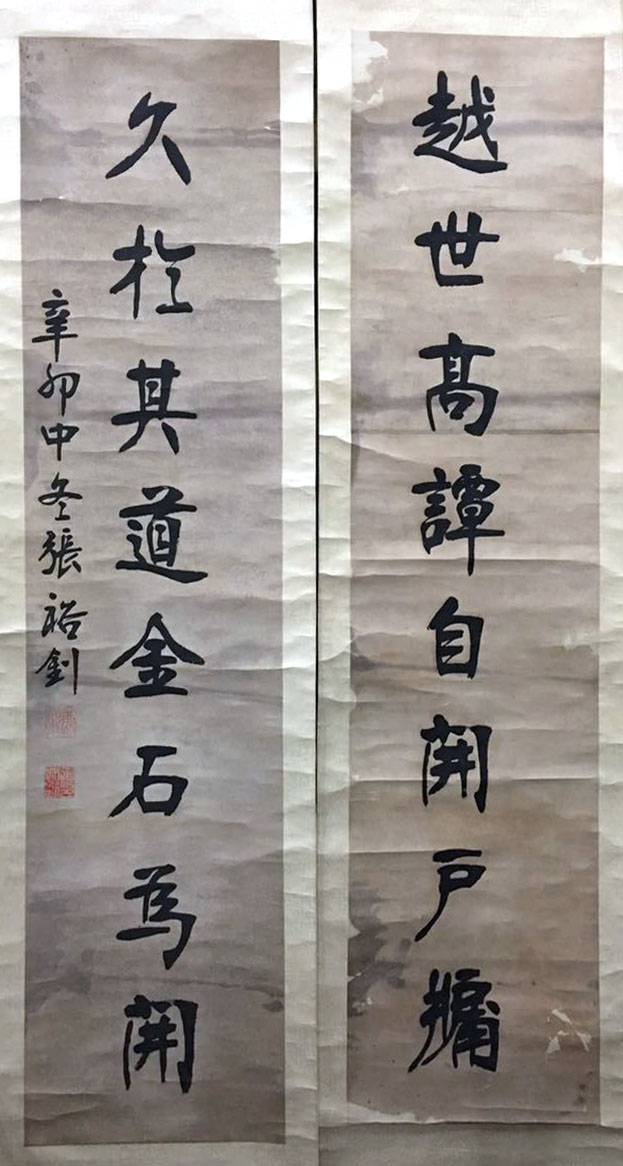 越世髙譚自開戶牖
久於其道金石為開
辛卯中冬張裕釗